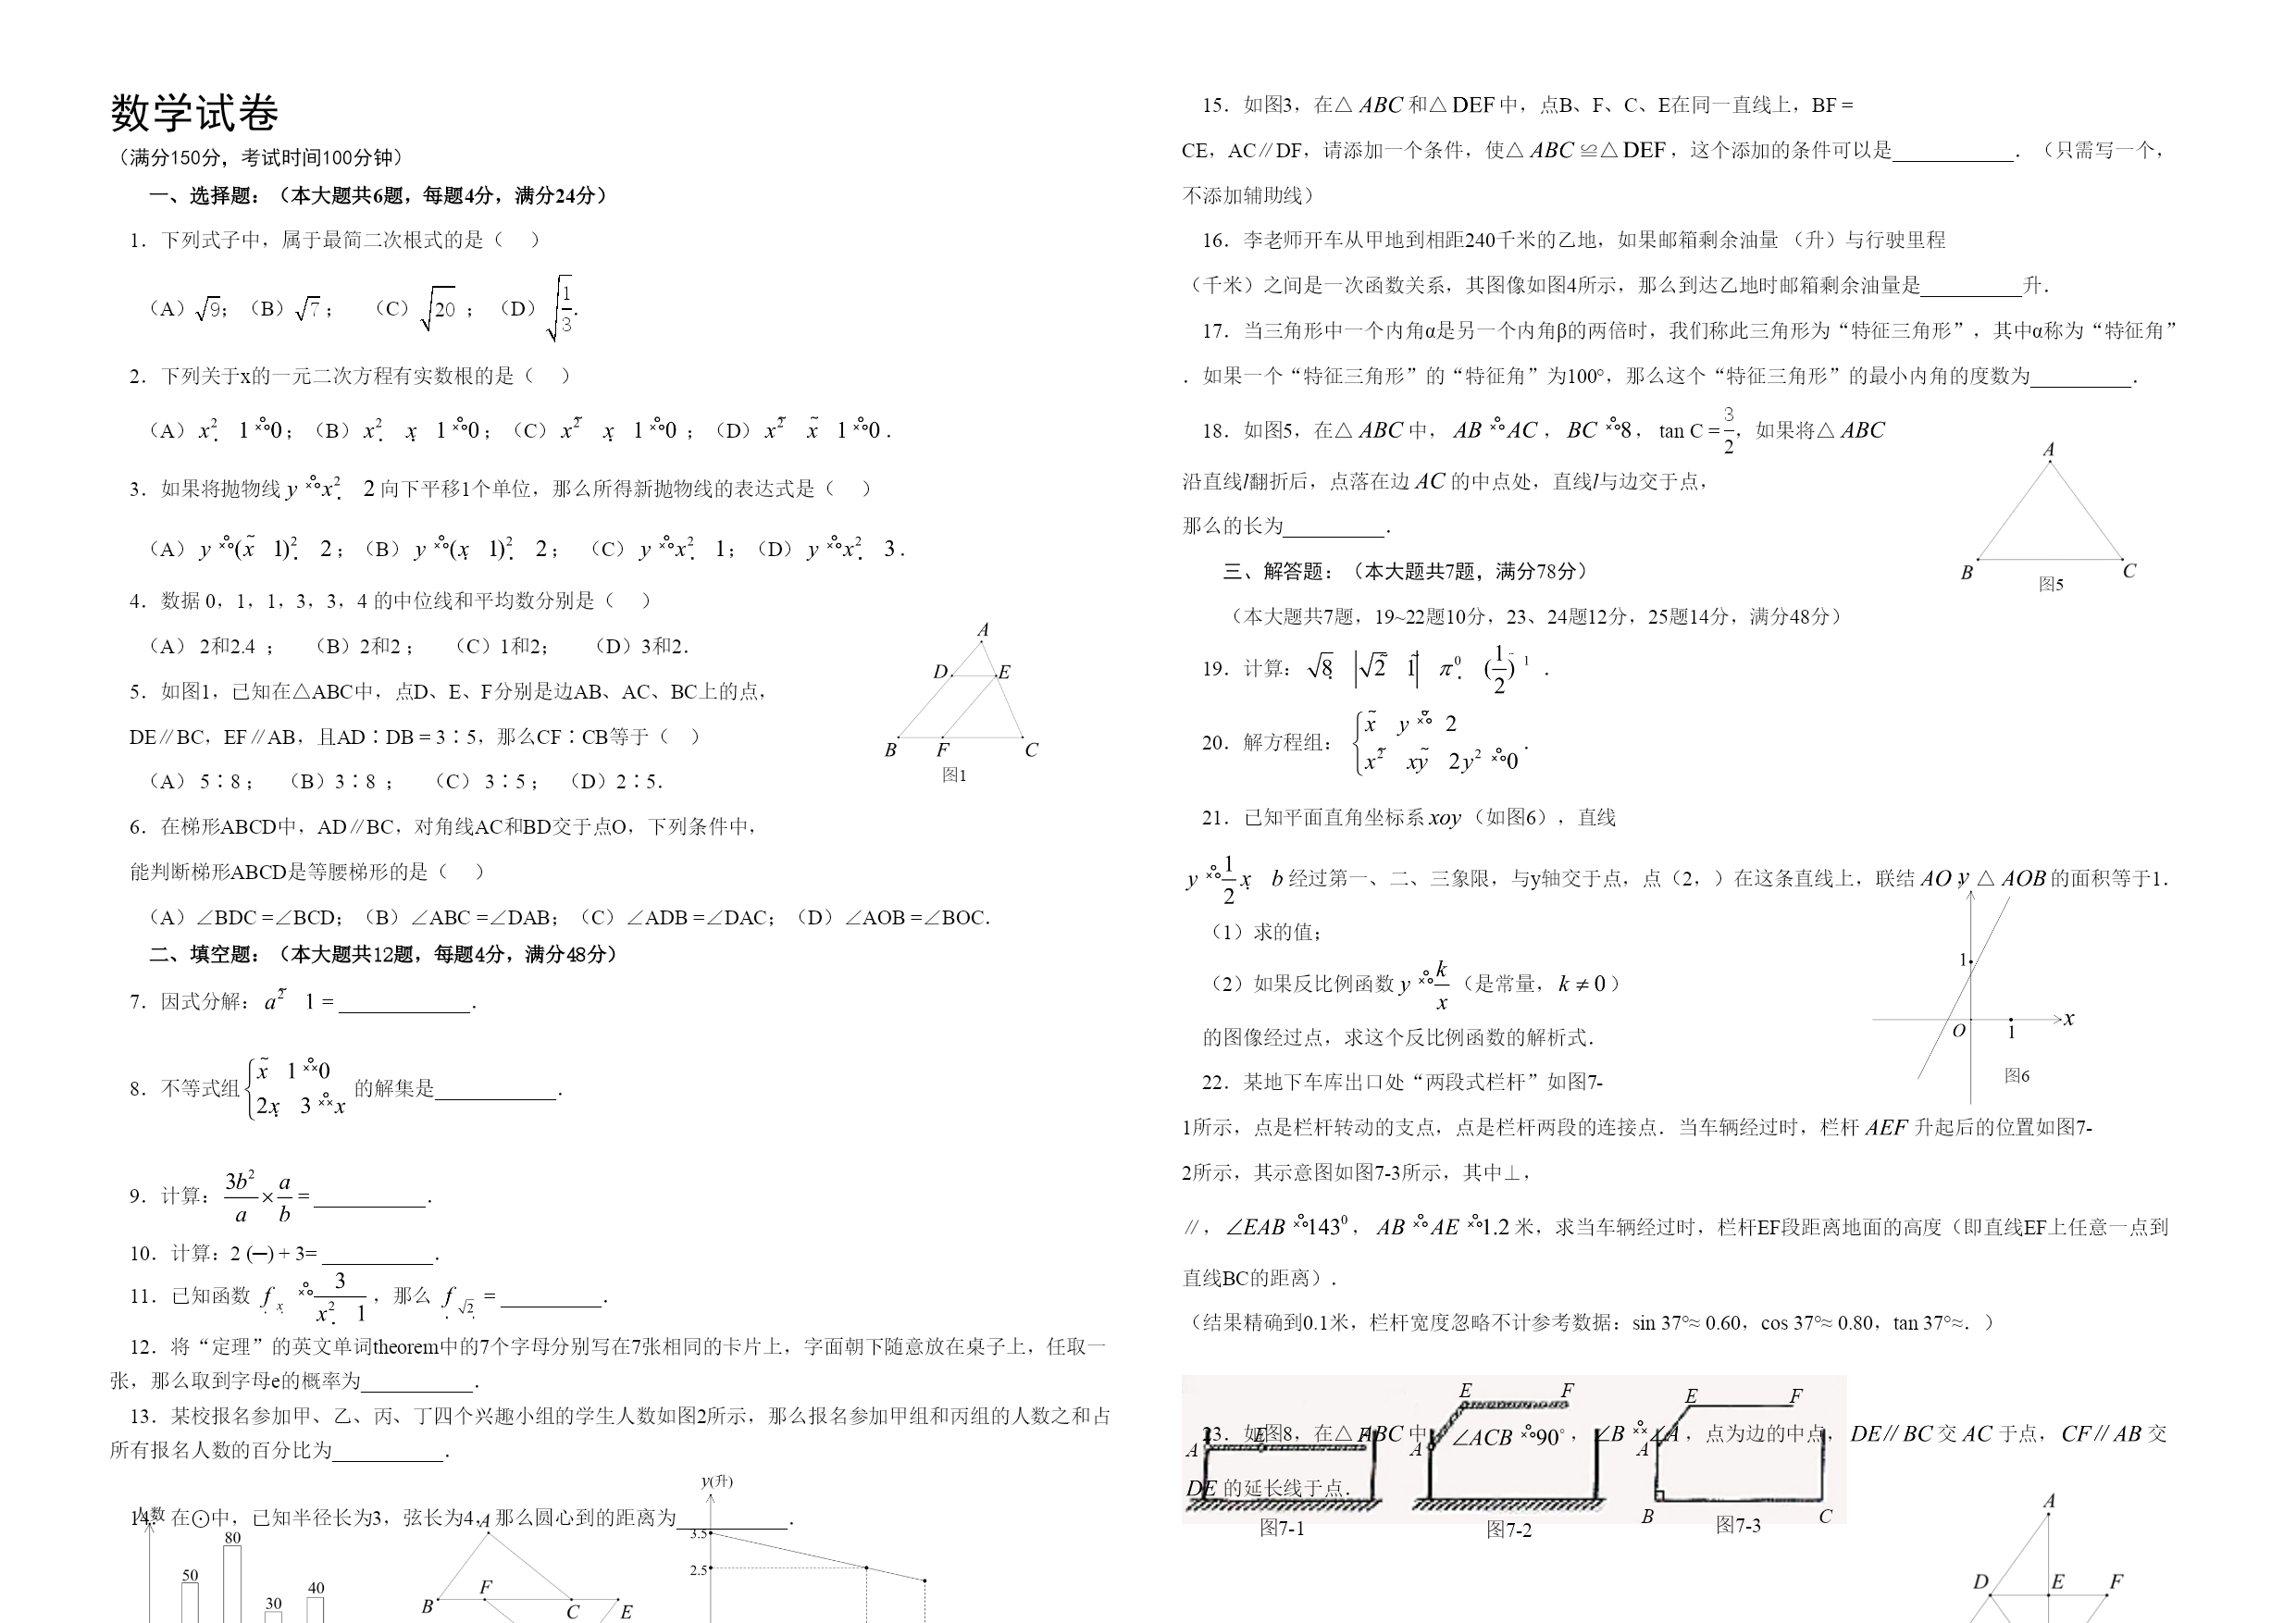 数学试卷
（满分150分，考试时间100分钟）
一、选择题：（本大题共6题，每题4分，满分24分）
1．下列式子中，属于最简二次根式的是（　）
（A）√9；（B）√7；（C）√20；（D）√(1/3)．
2．下列关于x的一元二次方程有实数根的是（　）
（A）x² 1 0；（B）x² x 1 0；（C）x² x 1 0；（D）x² x 1 0．
3．如果将抛物线 y x² 2 向下平移1个单位，那么所得新抛物线的表达式是（　）
（A）y (x 1)² 2；（B）y (x 1)² 2；（C）y x² 1；（D）y x² 3．
4．数据 0，1，1，3，3，4 的中位线和平均数分别是（　）
（A） 2和2.4 ；（B）2和2 ；（C）1和2；（D）3和2．
5．如图1，已知在△ABC中，点D、E、F分别是边AB、AC、BC上的点，
DE∥BC，EF∥AB，且AD∶DB = 3∶5，那么CF∶CB等于（　）
（A） 5∶8 ；（B）3∶8 ；（C） 3∶5 ；（D）2∶5．
A
D
E
B
F
C
图1
6．在梯形ABCD中，AD∥BC，对角线AC和BD交于点O，下列条件中，
能判断梯形ABCD是等腰梯形的是（　）
（A）∠BDC =∠BCD；（B）∠ABC =∠DAB；（C）∠ADB =∠DAC；（D）∠AOB =∠BOC．
二、填空题：（本大题共12题，每题4分，满分48分）
7．因式分解：a² 1 = ____________．
8．不等式组{x 1 0
2x 3 x 的解集是____________．
9．计算：3b²/a × a/b = ____________．
10．计算：2 (─) + 3= ____________．
11．已知函数 f x 3/(x² 1)，那么 f √2 = ____________．
12．将“定理”的英文单词theorem中的7个字母分别写在7张相同的卡片上，字面朝下随意放在桌子上，任取一
张，那么取到字母e的概率为____________．
13．某校报名参加甲、乙、丙、丁四个兴趣小组的学生人数如图2所示，那么报名参加甲组和丙组的人数之和占
所有报名人数的百分比为____________．
14．在⊙中，已知半径长为3，弦长为4，那么圆心到的距离为____________．
人数
80
50
30
40
A
B
F
C
E
y(升)
3.5
2.5
15．如图3，在△ABC和△DEF中，点B、F、C、E在同一直线上，BF =
CE，AC∥DF，请添加一个条件，使△ABC≌△DEF，这个添加的条件可以是____________．（只需写一个，
不添加辅助线）
16．李老师开车从甲地到相距240千米的乙地，如果邮箱剩余油量 （升）与行驶里程
（千米）之间是一次函数关系，其图像如图4所示，那么到达乙地时邮箱剩余油量是__________升．
17．当三角形中一个内角α是另一个内角β的两倍时，我们称此三角形为“特征三角形”，其中α称为“特征角”
．如果一个“特征三角形”的“特征角”为100°，那么这个“特征三角形”的最小内角的度数为__________．
18．如图5，在△ABC中，AB AC，BC 8，tan C = 3/2，如果将△ABC
沿直线l翻折后，点落在边AC的中点处，直线l与边交于点，
那么的长为__________．
A
B
C
图5
三、解答题：（本大题共7题，满分78分）
（本大题共7题，19~22题10分，23、24题12分，25题14分，满分48分）
19．计算：√8 |√2 1| π⁰ (1/2) ¹ ．
20．解方程组：{x y 2
x² xy 2y² 0．
21．已知平面直角坐标系xoy（如图6），直线
y 1/2 x b 经过第一、二、三象限，与y轴交于点，点（2，）在这条直线上，联结AO，△AOB的面积等于1．
（1）求的值；
（2）如果反比例函数 y k/x（是常量，k ≠ 0）
的图像经过点，求这个反比例函数的解析式．
y
1
O
1
x
图6
22．某地下车库出口处“两段式栏杆”如图7-
1所示，点是栏杆转动的支点，点是栏杆两段的连接点．当车辆经过时，栏杆AEF升起后的位置如图7-
2所示，其示意图如图7-3所示，其中⊥，
∥，∠EAB 143⁰，AB AE 1.2米，求当车辆经过时，栏杆EF段距离地面的高度（即直线EF上任意一点到
直线BC的距离）．
（结果精确到0.1米，栏杆宽度忽略不计参考数据：sin 37°≈ 0.60，cos 37°≈ 0.80，tan 37°≈．）
A
E
F
图7-1
A
E
F
图7-2
A
E
F
B
C
图7-3
23．如图8，在△ABC中，∠ACB 90°，∠B ∠A，点为边的中点，DE∥BC交AC于点，CF∥AB交
DE的延长线于点．
A
D
E
F